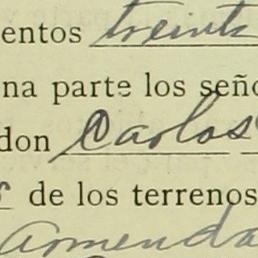 entos treinta
na parte los seño
don Carlos
s de los terrenos
Armenda